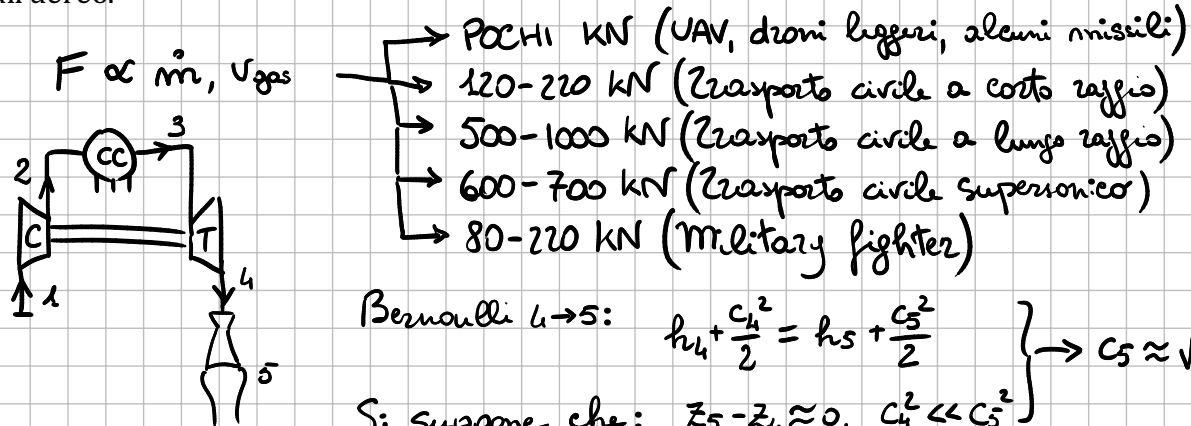 F ∝ ṁ, vgas
POCHI KN (UAV, droni leggeri, alcuni missili)
120-220 KN (Trasporto civile a corto raggio)
500-1000 KN (Trasporto civile a lungo raggio)
600-700 KN (Trasporto civile supersonico)
80-220 KN (Military fighter)
3
CC
2
C
T
1
4
5
Bernoulli 4→5:
h₄ + c₄²/2 = h₅ + c₅²/2
→ c₅ ≈ √
Si suppone che: z₅ - z₄ ≈ 0, c₄² << c₅²